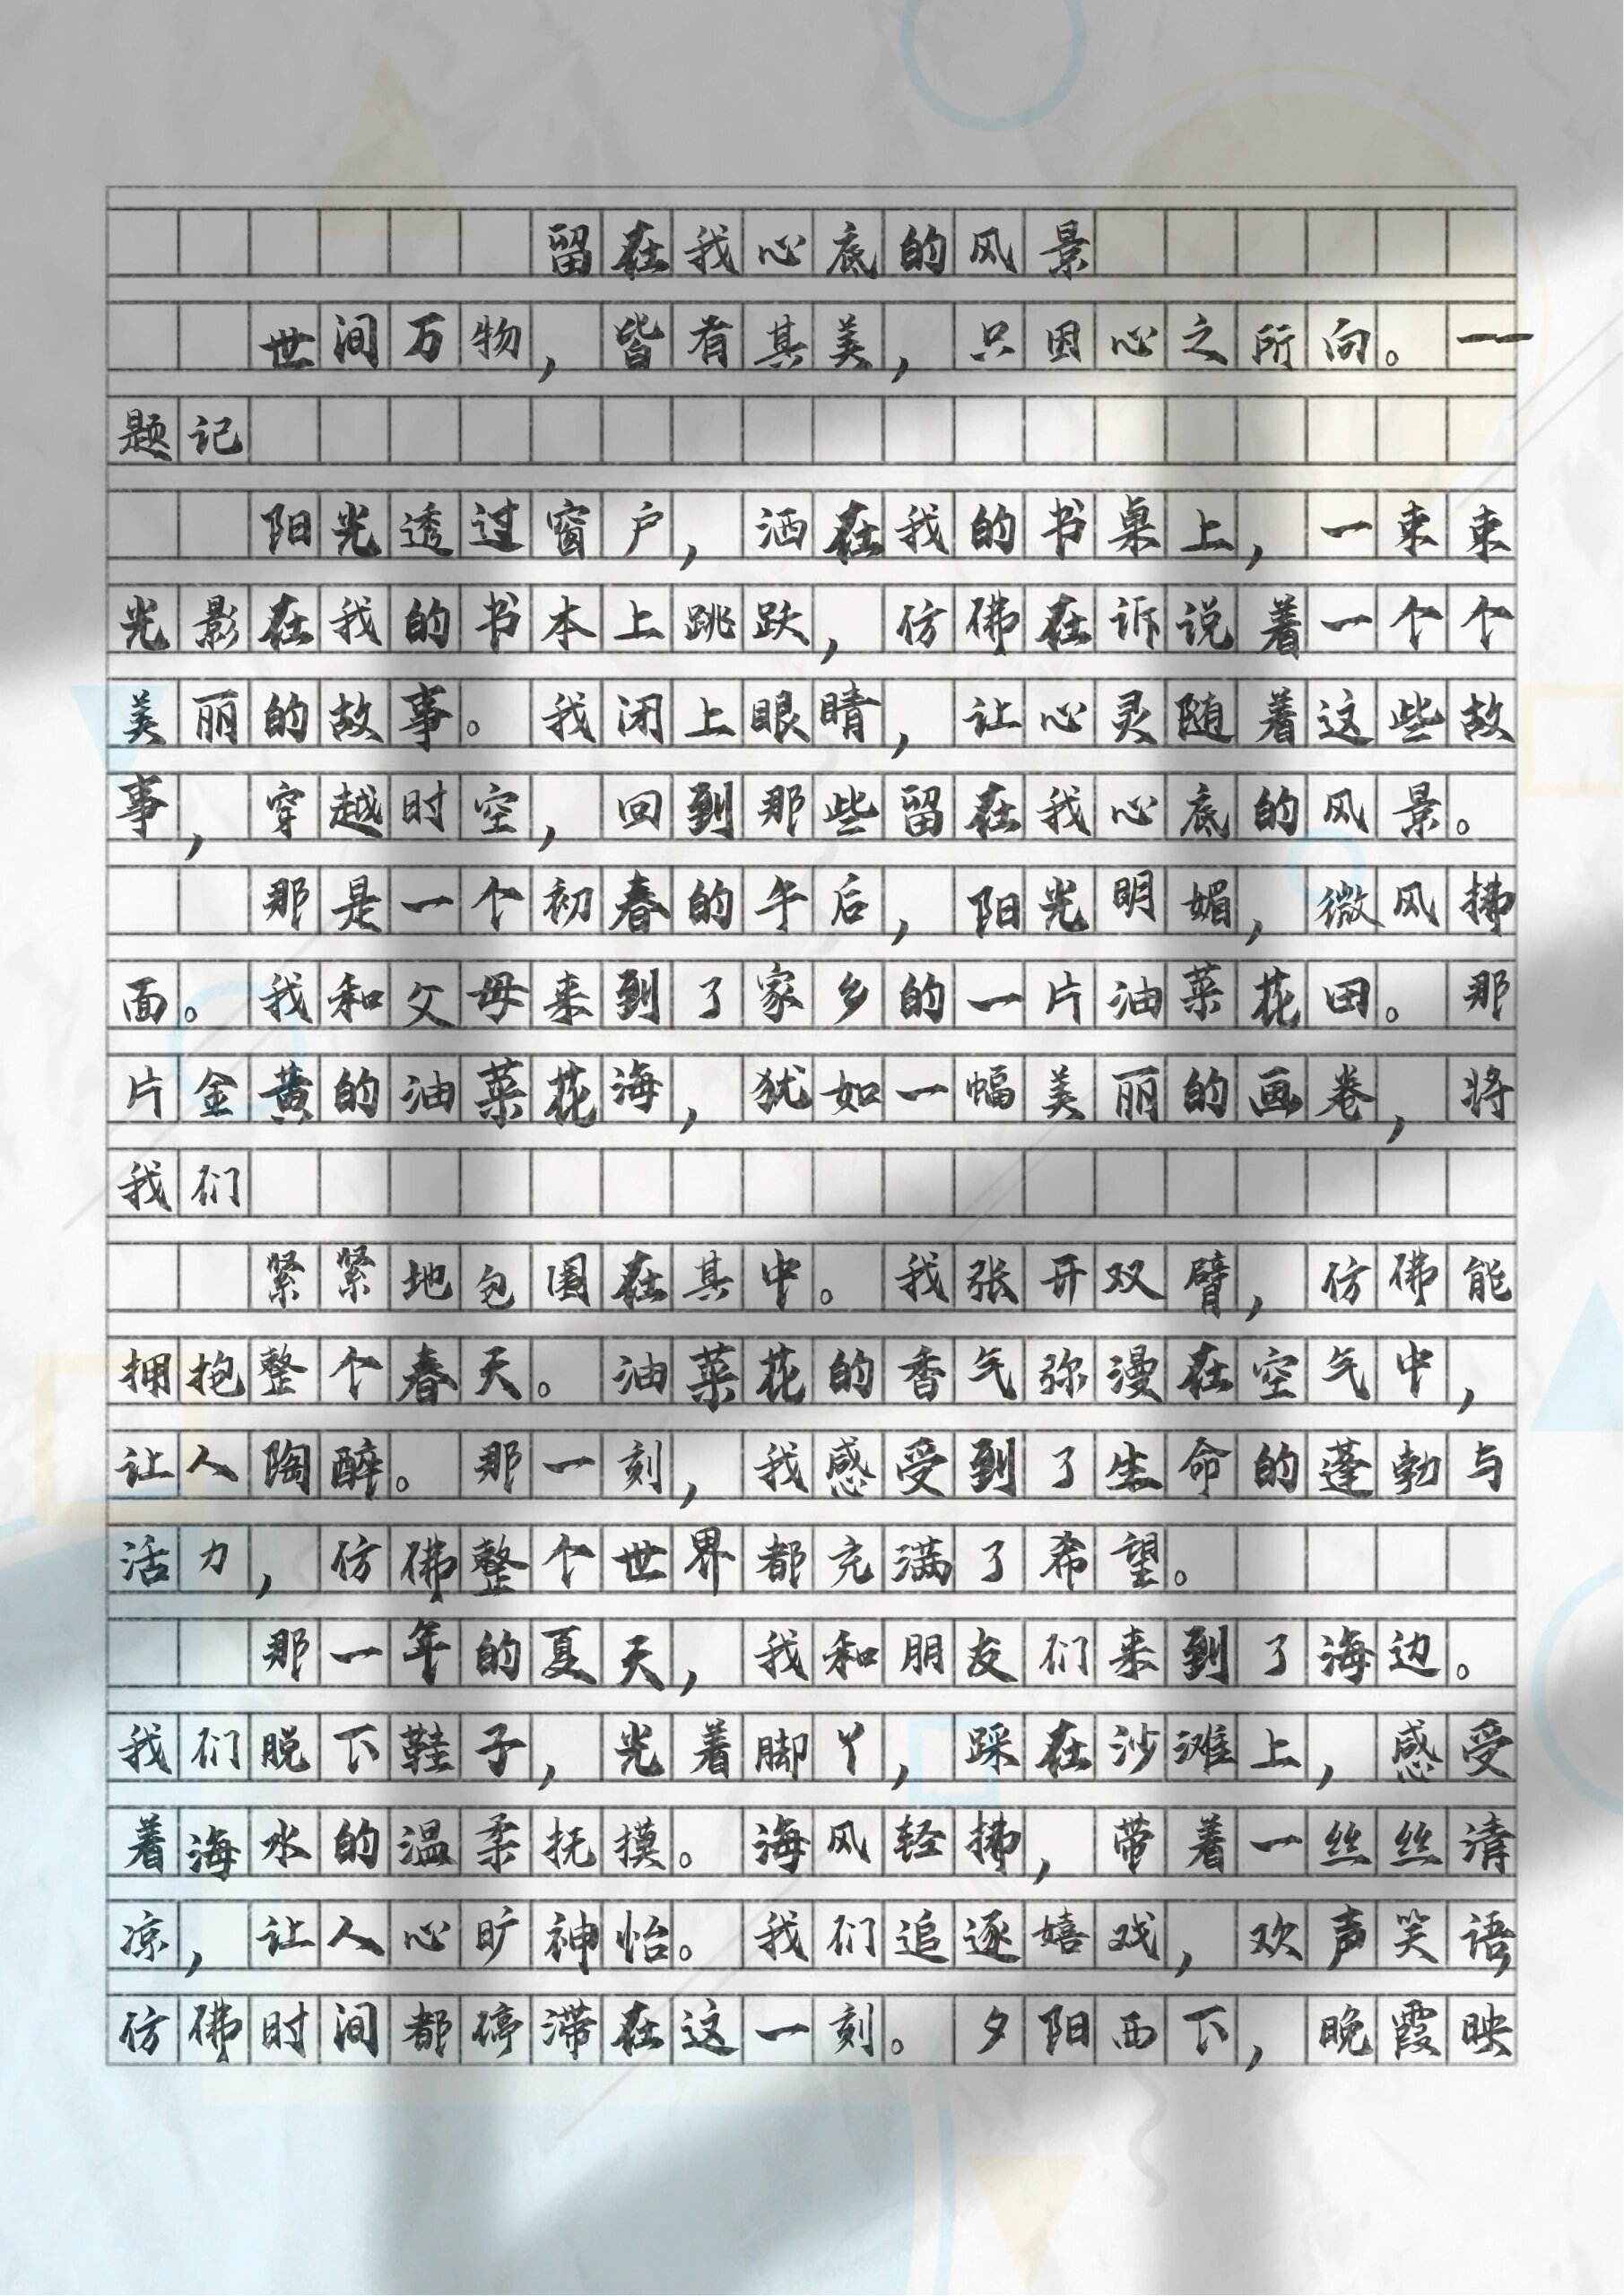 留在我心底的风景
世间万物，皆有其美，只因心之所向。—
题记
阳光透过窗户，洒在我的书桌上，一束束
光影在我的书本上跳跃，仿佛在诉说着一个个
美丽的故事。我闭上眼睛，让心灵随着这些故
事，穿越时空，回到那些留在我心底的风景。
那是一个初春的午后，阳光明媚，微风拂
面。我和父母来到了家乡的一片油菜花田。那
片金黄的油菜花海，犹如一幅美丽的画卷，将
我们
紧紧地包围在其中。我张开双臂，仿佛能
拥抱整个春天。油菜花的香气弥漫在空气中，
让人陶醉。那一刻，我感受到了生命的蓬勃与
活力，仿佛整个世界都充满了希望。
那一年的夏天，我和朋友们来到了海边。
我们脱下鞋子，光着脚丫，踩在沙滩上，感受
着海水的温柔抚摸。海风轻拂，带着一丝丝清
凉，让人心旷神怡。我们追逐嬉戏，欢声笑语，
仿佛时间都停滞在这一刻。夕阳西下，晚霞映